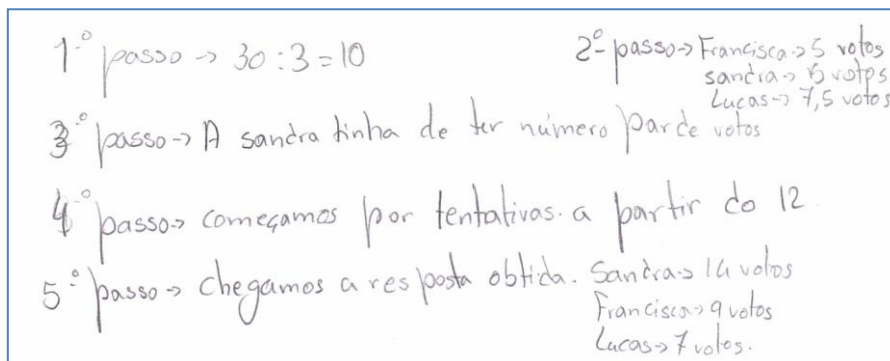 1.º passo → 30 : 3 = 10
2.º passo → Francisca → 5 votos
sandra → 15 votos
Lucas → 7,5 votos
3.º passo → A sandra tinha de ter número par de votos
4.º passo → começamos por tentativas. a partir do 12
5.º passo → chegamos a resposta obtida. Sandra → 14 votos
Francisca → 9 votos
Lucas → 7 votos.